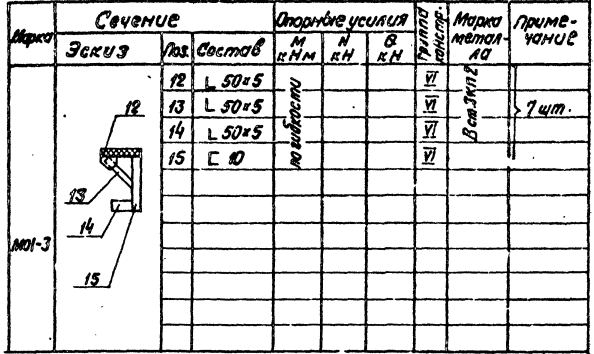 Марка Сечение Опорные усилия Группа констр. Марка метал-ла Приме-чание
Эскиз Поз. Состав М кНм N кН Q кН
12 L 50×5 по гибкости VI Вст3кп2 7 шт.
13 L 50×5 VI
14 L 50×5 VI
15 [ 10 VI
12
13
14
МО1-3
15